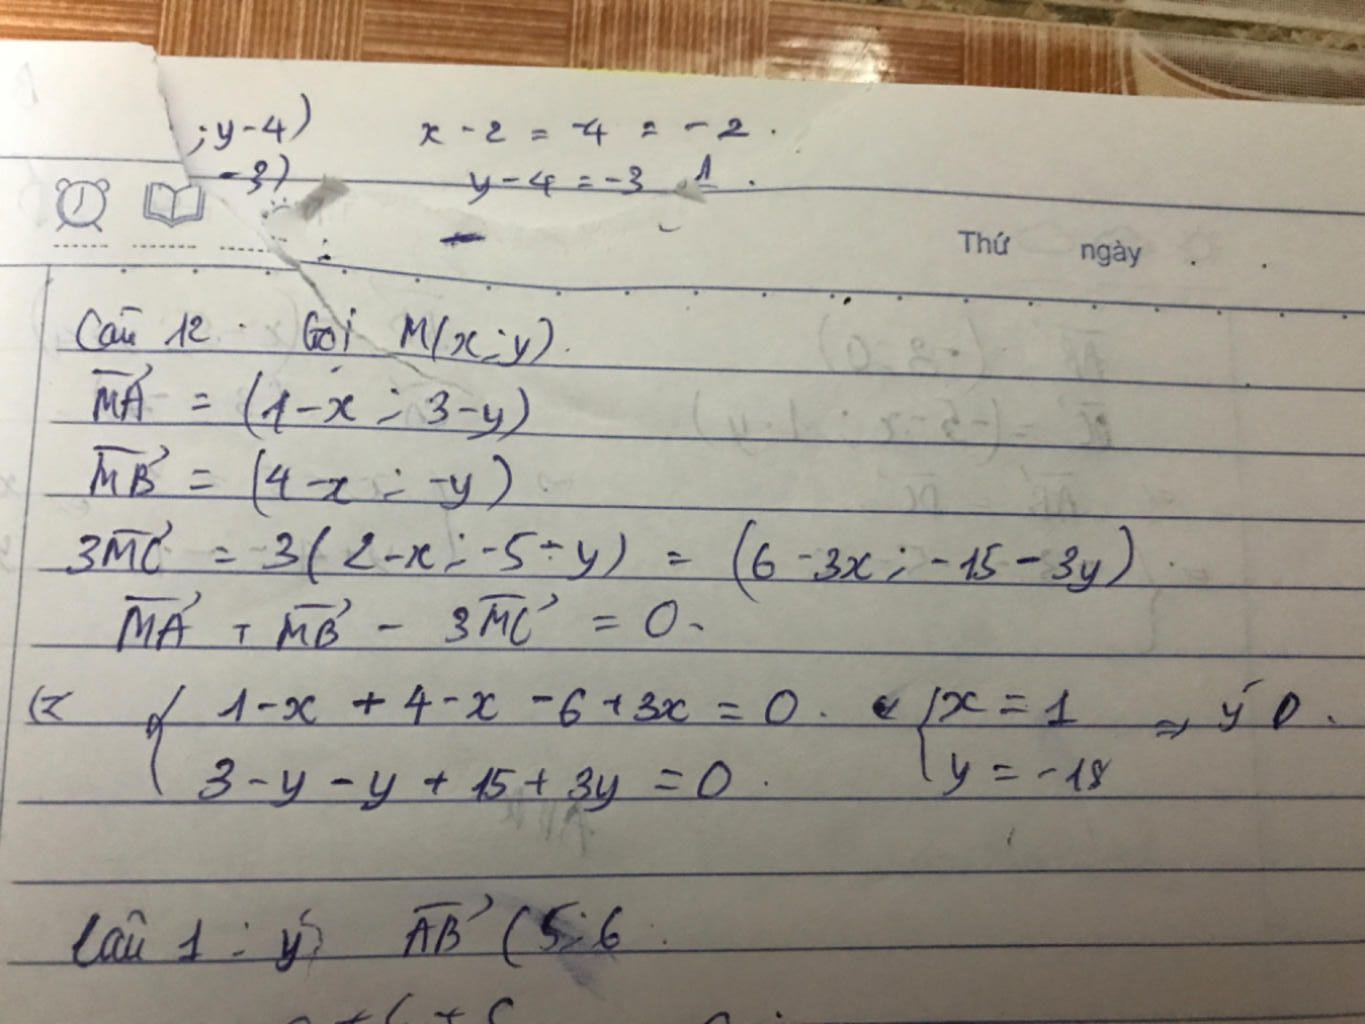 ; y-4) x - 2 = -4 = -2.
-3) y-4 = -3 1.
Thứ ngày
Câu 12. Gọi M(x;y).
MA = (1-x; 3-y)
MB = (4-x; -y)
3MC = 3(2-x; -5-y) = (6-3x; -15-3y).
MA + MB - 3MC = 0.
1-x + 4-x - 6+3x = 0. x = 1 => ý D.
3-y-y + 15 + 3y = 0. y = -18
Câu 1: ý AB (5;6